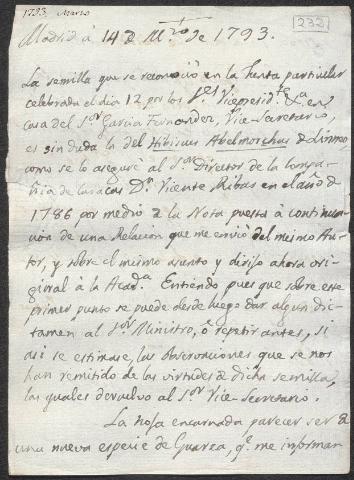 1793. Marzo
232
Madrid á 14 de M.zo de 1793.
La semilla que se reconoció en la Junta particular
celebrada el dia 12 por los S.res Vicepresid.te &.a en
casa del S.or Garcia Fernandez, Vice-Secretario,
es sin duda la del Hibiscus Abelmoschus de Linneo
como se lo aseguré al S.or Director de la Compa-
ñia de Caracas D.n Vicente Ribas en el año de
1786 por medio de la Nota puesta á continua-
cion de una Relacion que me envió del mismo Au-
tor, y sobre el mismo asunto y dirijo ahora ori-
ginal à la Acad.a Entiendo pues que sobre este
primer punto se puede desde luego dar algun dic-
tamen al S.or Ministro, ó repetir antes, si
asi se estimase, las observaciones que se nos
han remitido de las virtudes de dicha semilla,
las quales devuelvo al S.or Vice-Secretario.
La hoja encarnada parecer ser de
una nueva especie de q.e me informan